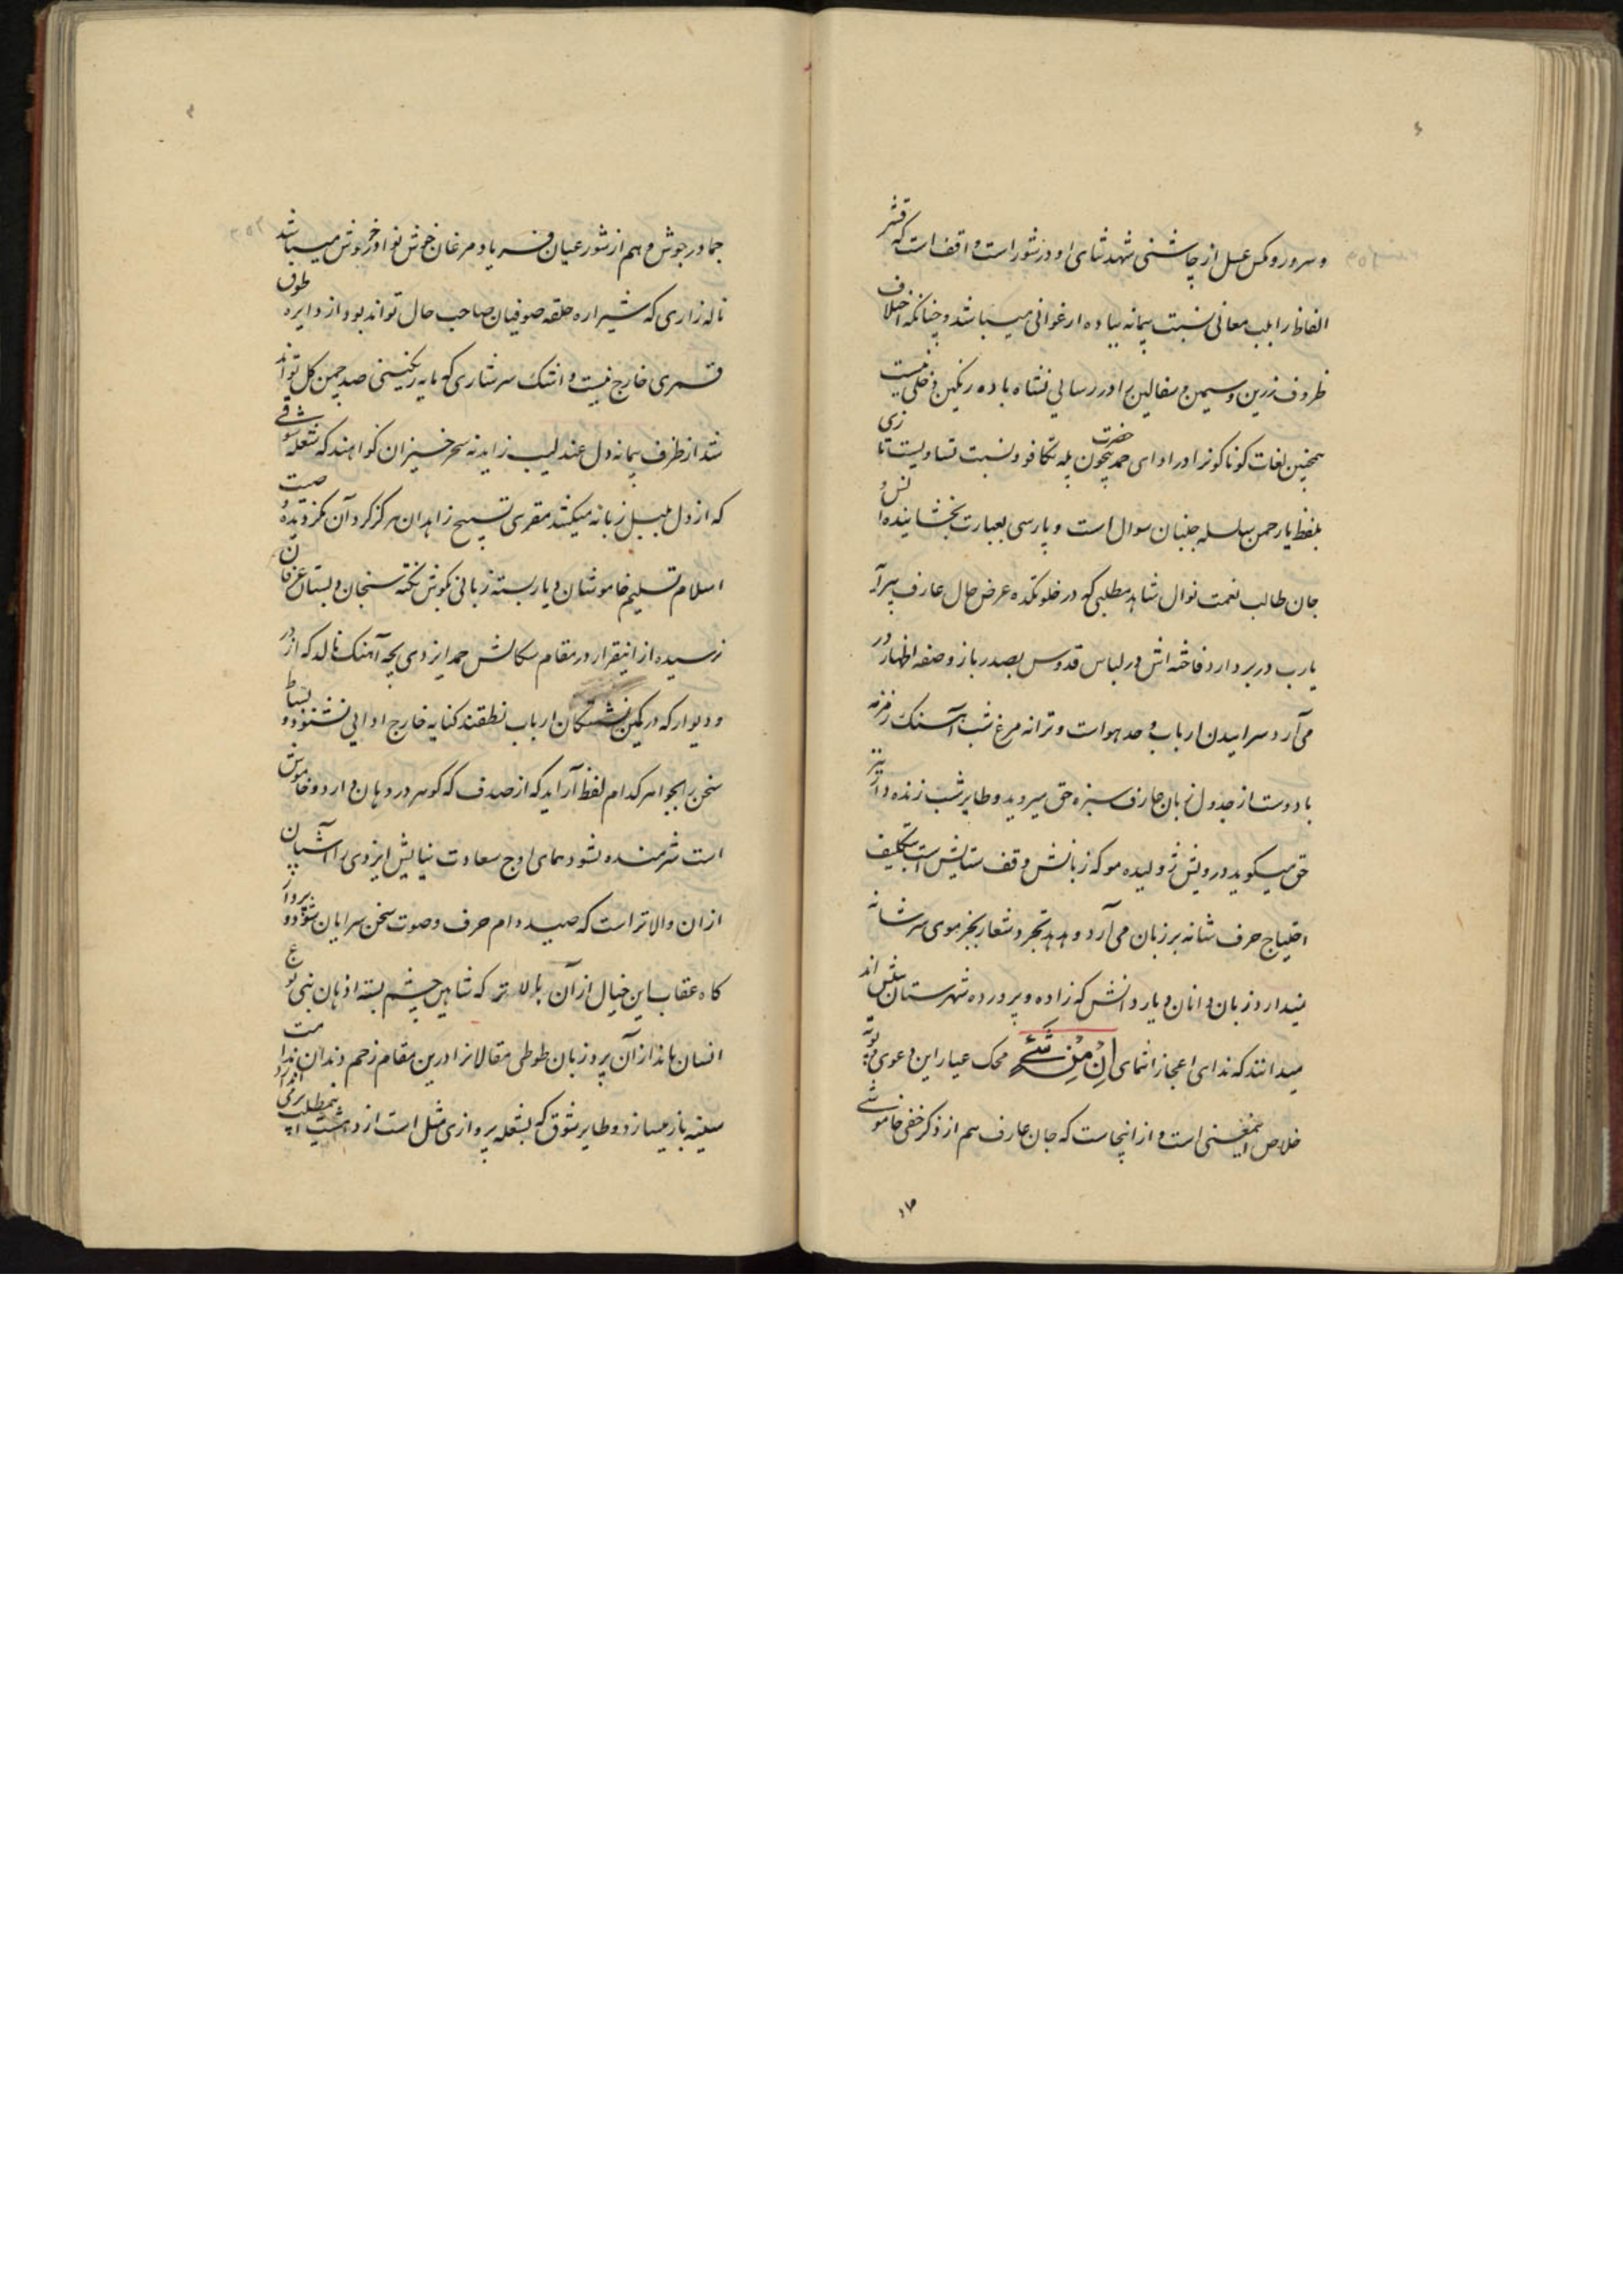 و سرور و مکس عسل از چاشنی شهد ثنای او در شور است واقف است که قشر
الفاظ را بلب معانی نسبت پیمانه بباده ارغوانی میباشد و چنانکه اختلاف
ظروف زرین و سیمین و سفالین را در رسایی نشاه باده رنگین دخلی نیست
همچنین لغات کوناکونرا در ادای حمد حضرت بیچون پله تکافو و نسبت تساویست تازی
بلفظ یا رحمن سلسله جنبان سوال است و پارسی بعبارت بخشاینده انس و
جان طالب نعمت نوال شاهد مطلبی که در خلوتکده عرض حال عارف پیرآ
یا رب در بر دارد فاخته اش در لباس قدوس بصدر باز و صفه اظهار در
می آرد سراییدن ارباب وحد هو است و ترانه مرغ شب آهنک زمزمه
یا دوست از جدول زبان عارف سبزه حق میروید و طایر شب زنده دار نیز
حق میکوید درویش ژولیده مو که زبانش وقف ستایش است بتکلیف
احتیاج حرف شانه بر زبان می آرد و هدهد تجرد شعار بجز موی سر شانه
نمیدارد زبان دانان دیار دانش که زاده و پرورده شهرستان بینش اند
میدانند که ندای اعجاز انتمای اِنْ مِنْ شَئٍ محک عیار این دعوی بوته
خلاص اینمعنی است و از اینجاست که جان عارف هم از ذکر خفی خاموشی
جما در جوش و هم از شور عیان فریاد مرغان خوش نوا در خروش میباشد
ناله زاری که شیرازه حلقه صوفیان صاحب حال تواند بود از دایره طوق
قمری خارج نیست و اشک سرشاری که مایه رنکینی صد چمن کل تواند
شد از ظرف پیمانه دل عندلیب زاید نه سحر خیزان کواهند که شعله شوقی
که از دل بلبل زبانه میکشد مقری تسبیح زاهدان هرکز کرد آن نکردیده و صیت
اسلام تسلیم خاموشان دیار بسته زبانی بکوش نکته سنجان دبستان عرفان
نرسیده از اینقرار در مقام سکالش حمد ایزدی بچه آهنک نالد که از در
و دیوار که در کمین نشستکان ارباب نطقند کنایه خارج ادایی نشنود و بساط
سخن را بجواهر کدام لفظ آراید که از صدف که کوهر در دهان دارد و خاموش
است شرمنده نشود همای اوج سعادت نیایش ایزدی را آشیان
از ان والاتر است که صید دام حرف و صوت سخن سرایان شود و پرواز
کاه عقاب این خیال از آن بالاتر که شاهین چشم بسته اذهان بنی نوع
انسان باندازآن پرد زبان طوطی مقالانرا درین مقام زحم دندان ندامت
سفینه باز میسازد و طایر شوق که بشعله پروازی مثل است از دهشت